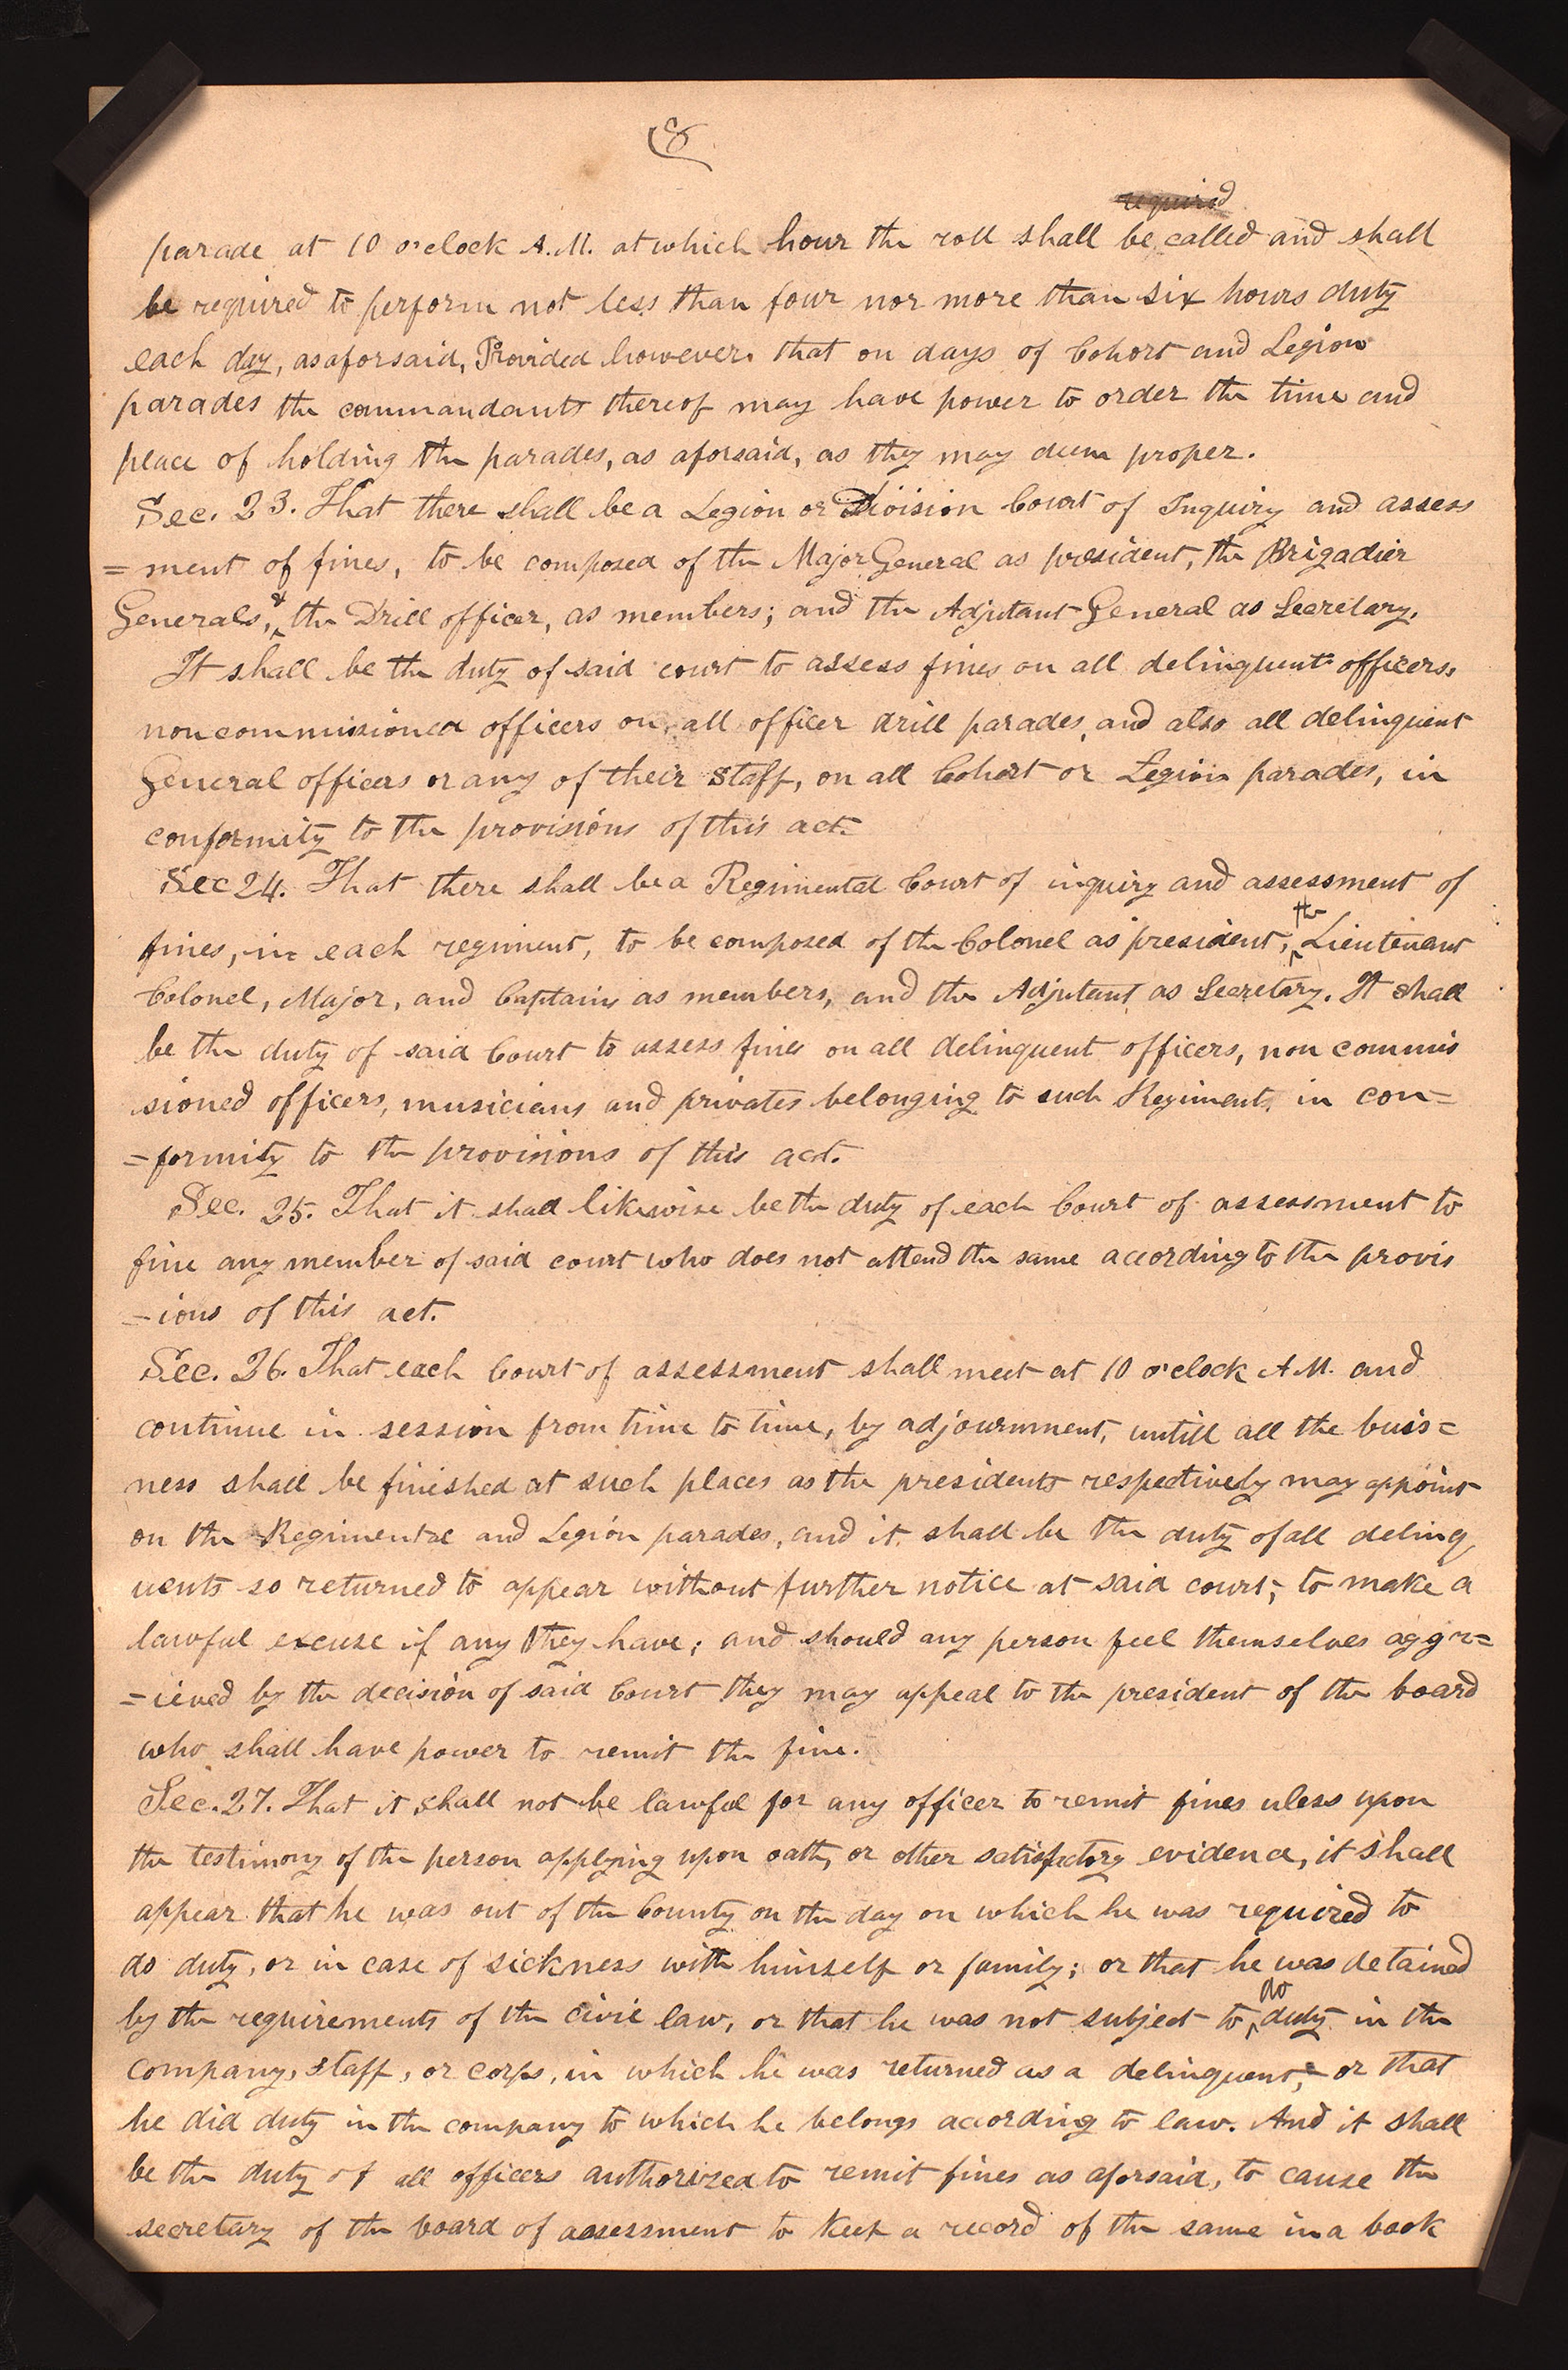 8
required
parade at 10 o'clock A.M. at which hour the roll shall be called and shall
be required to perform not less than four nor more than six hours duty
each day, as aforsaid, Provided however. that on days of Cohort and Legion
parades the commandants thereof may have power to order the time and
place of holding the parades, as aforsaid, as they may deem proper.
Sec. 23. That there shall be a Legion or Division Court of Inquiry and assess
= ment of fines, to be composed of the Major General as president, the Brigadier
Generals, & the Drill officer, as members; and the Adjutant General as Secretary.
It shall be the duty of said court to assess fines on all delinquent officers,
noncommissioned officers on all officer drill parades, and also all delinquent
General officers or any of their staff, on all Cohort or Legion parades, in
conformity to the provisions of this act.
Sec 24. That there shall be a Regimental Court of inquiry and assessment of
fines, in each regiment, to be composed of the Colonel as president, the Lieutenant
Colonel, Major, and Captains as members, and the Adjutant as Secretary. It shall
be the duty of said Court to assess fines on all delinquent officers, non commis
sioned officers, musicians and privates belonging to such Regiment, in con=
=formity to the provisions of this act.
Sec. 25. That it shall likewise be the duty of each Court of assessment to
fine any member of said court who does not attend the same according to the provis
=ions of this act.
Sec. 26. That each Court of assessment shall meet at 10 o'clock A.M. and
continue in session from time to time, by adjournment, untill all the buis=
ness shall be finished at such places as the presidents respectively may appoint
on the Regimental and Legion parades, and it shall be the duty of all delinq
uents so returned to appear without further notice at said court, to make a
lawful excuse if any they have; and should any person feel themselves aggr=
=ieved by the decision of said Court they may appeal to the president of the board
who shall have power to remit the fine.
Sec. 27. That it shall not be lawful for any officer to remit fines uless upon
the testimony of the person applying upon oath, or other satisfactory evidence, it shall
appear that he was out of the County on the day on which he was required to
do duty, or in case of sickness with himself or family; or that he was detained
by the requirements of the civil law, or that he was not subject to do duty in the
company, staff, or corps, in which he was returned as a delinquent; or that
he did duty in the company to which he belongs according to law. And it shall
be the duty of all officers authorized to remit fines as aforsaid, to cause the
secretary of the board of assessment to keep a record of the same in a book